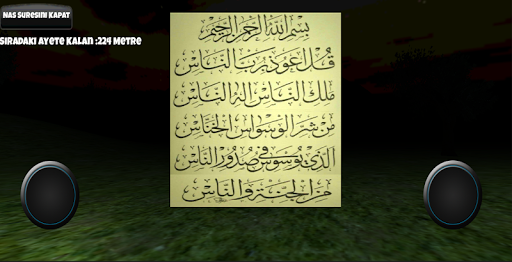 NAS SURESINI KAPAT
SIRADAKI AYETE KALAN :224 METRE
بسم الله الرحمن الرحيم
قل أعوذ برب الناس
ملك الناس إله الناس
من شر الوسواس الخناس
الذي يوسوس في صدور الناس
من الجنة والناس